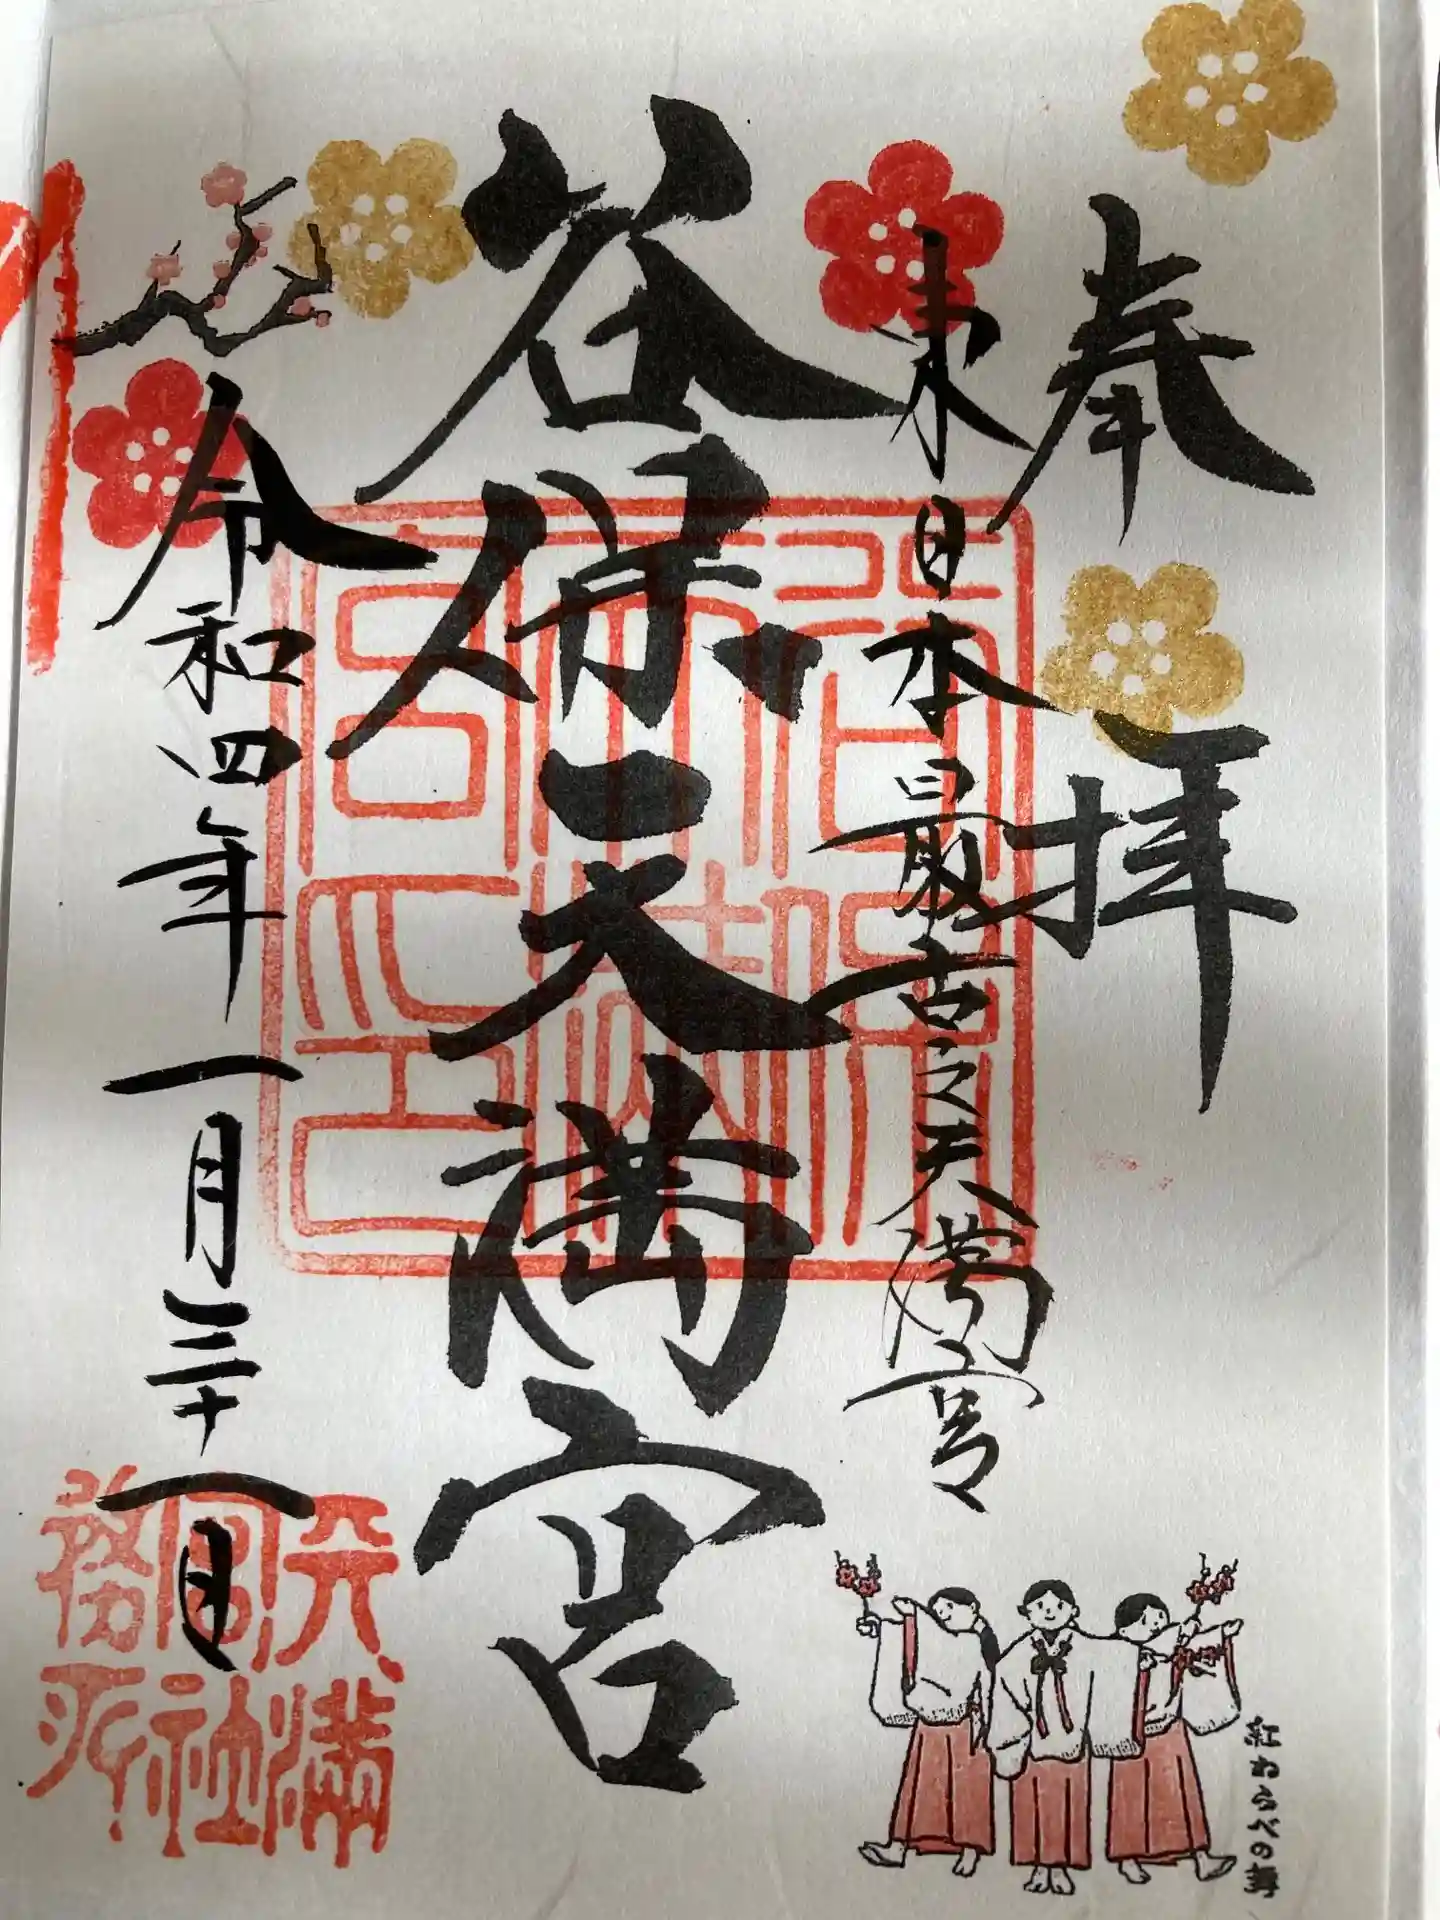 奉拝
東日本最古之天満宮
谷保天満宮
令和四年一月三十一日
天満宮社務所
紅わらべの舞